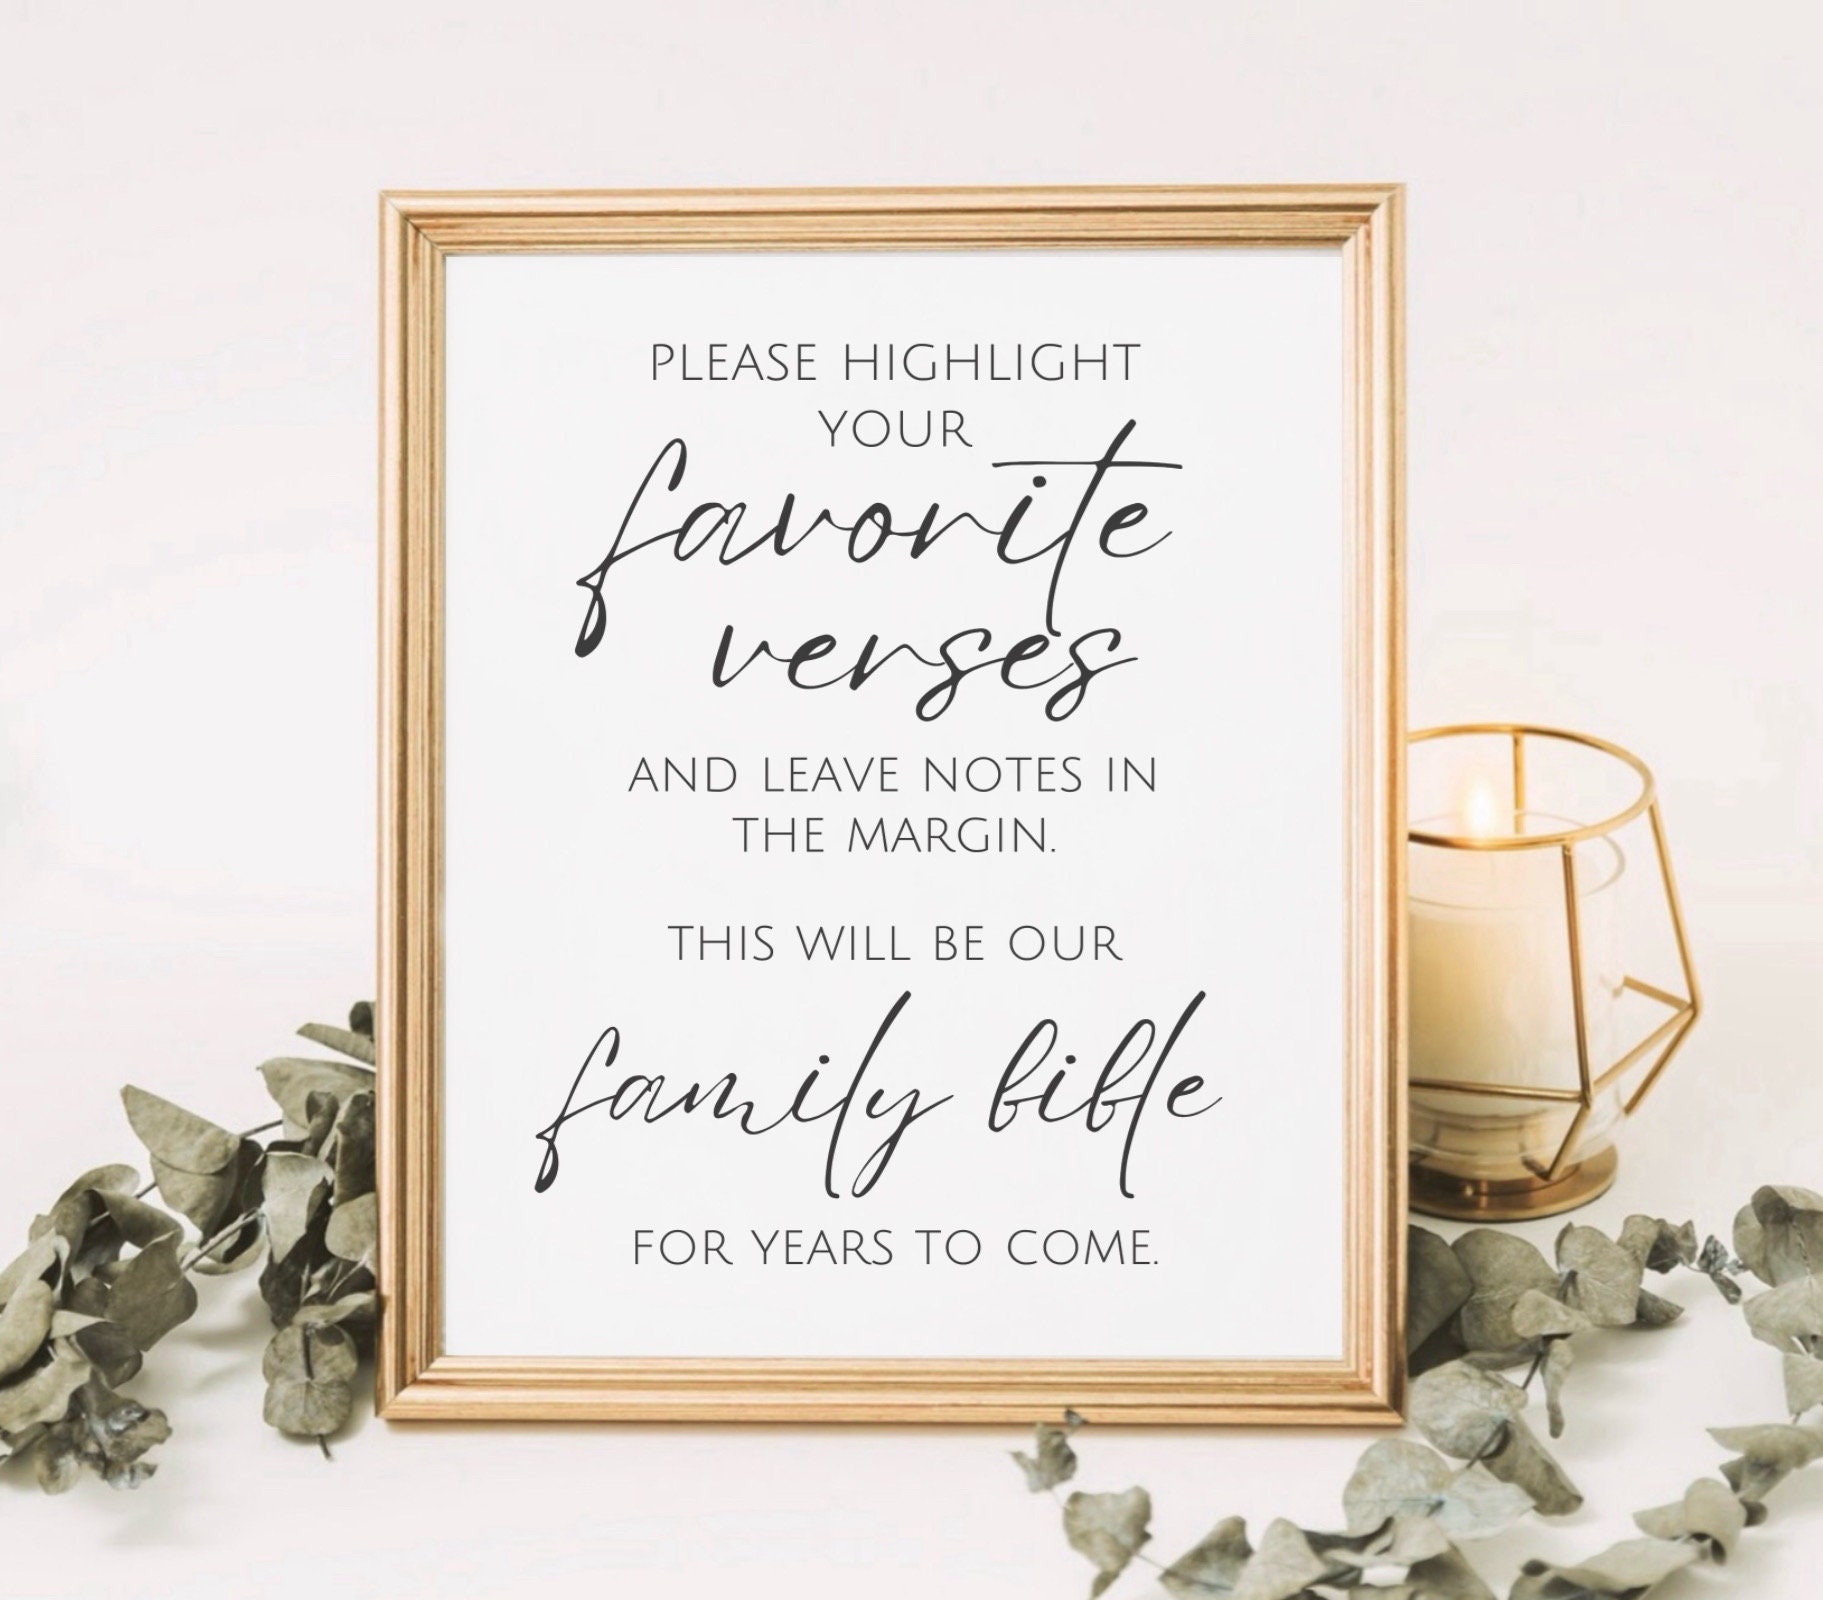 PLEASE HIGHLIGHT
YOUR
favorite
verses
AND LEAVE NOTES IN
THE MARGIN.
THIS WILL BE OUR
family bible
FOR YEARS TO COME.